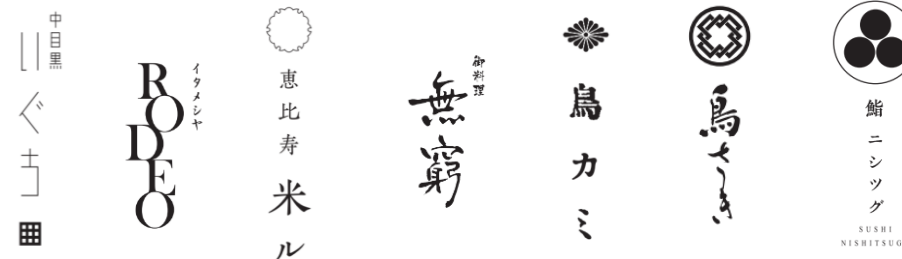 中目黒
いぐち
イタメシヤ
RODEO
恵比寿
米ル
御料理
無窮
鳥カミ
鳥さき
鮨 ニシツグ
SUSHI